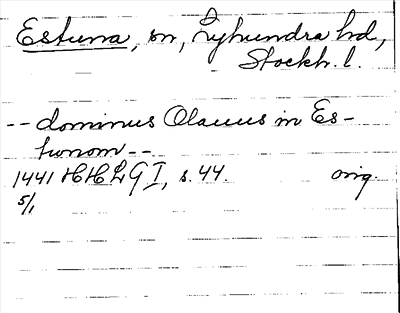 Estuna, sn, Lyhundra hd,
Stockh. l.
-- dominus Olauus in Es-
tunom --
1441 HHLGI, s. 44. orig.
5/1